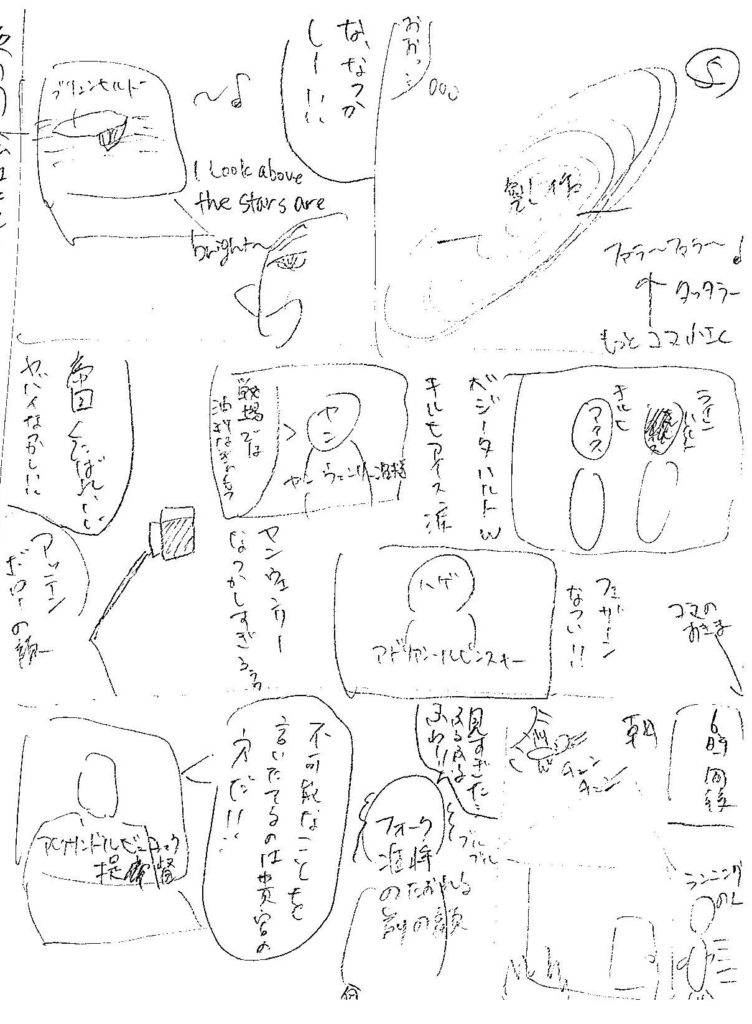 5
おおっ…
銀河
ファラ〜ファラ〜♪
タッタラー
もっとコマ小さく
な、なつか
しー!!
〜♪
I look above
the stars are
bright〜
ブリュンヒルド
ライン
ハルト
キルヒ
アイス
ベジータハルトw
キルヒアイス准
ヤン
ヤン ウェンリー准将
戦場では
帝国くたばれいい
ヤバイなつかしい!!
フェザーン
なつい!!
ハゲ
アドリアン・ルビンスキー
ヤンウェンリー
なつかしすぎるぅぅ
アッテン
ボローの顔
コマの
おおきさ
6時間後
ランニング
の人
朝
チュン
チュン
見すぎた…
ブル
ブル
フォーク
准将
のたおれる
前の顔
不可能なことを
言いたてるのは貴官の
方だ!!
アレクサンドル・ビュコック
提督